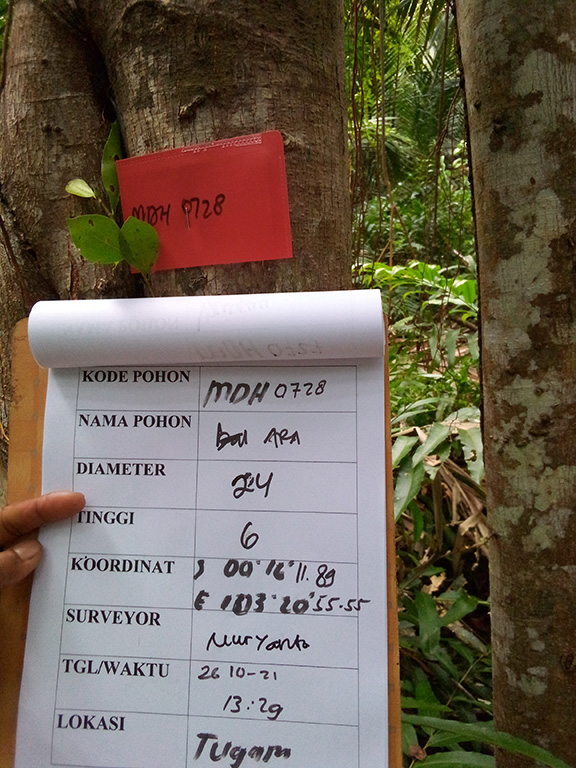 MDH 0728
KODE POHON MDH 0728
NAMA POHON ARA
DIAMETER 24
TINGGI 6
KOORDINAT S 00°16'11.89
E 103°20'55.55
SURVEYOR Nuryanto
TGL/WAKTU 26 10-21
13:29
LOKASI Tugam